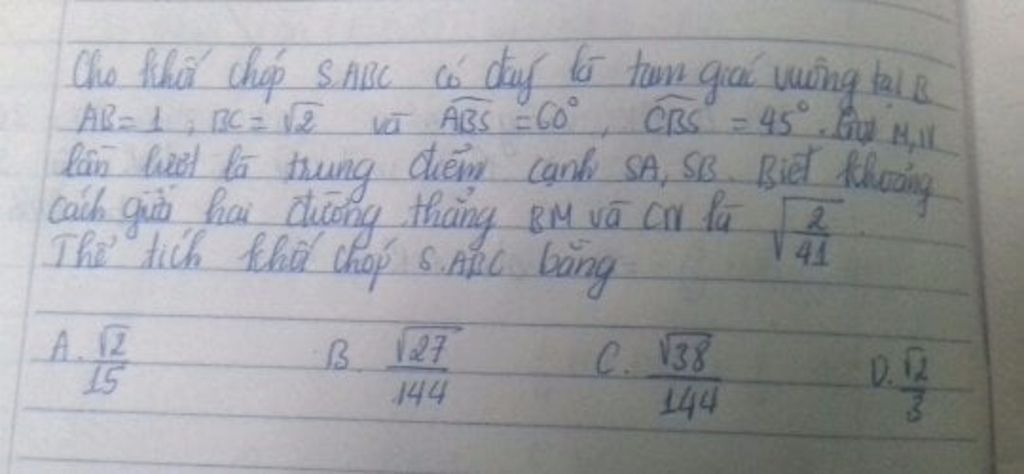 Cho khối chóp S.ABC có đáy là tam giác vuông tại B
AB = 1 ; BC = √2 và ABS = 60°, CBS = 45°. Gọi M, N
lần lượt là trung điểm cạnh SA, SB. Biết khoảng
cách giữa hai đường thẳng BM và CN là √(2/41)
Thể tích khối chóp S.ABC bằng
A. √2/15 B. √27/144 C. √38/144 D. √2/3